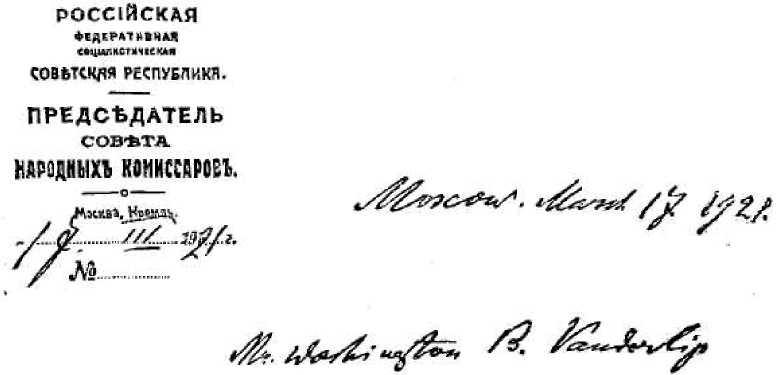 РОССІЙСКАЯ
ФЕДЕРАТИВНАЯ
СОЦІАЛИСТИЧЕСКАЯ
СОВѢТСКАЯ РЕСПУБЛИКА.
ПРЕДСѢДАТЕЛЬ
СОВѢТА
НАРОДНЫХЪ КОМИССАРОВЪ.
Москва, Кремль.
17 III 1921 г.
№
Moscow. March 17. 1921.
Mr. Washington B. Vanderlip